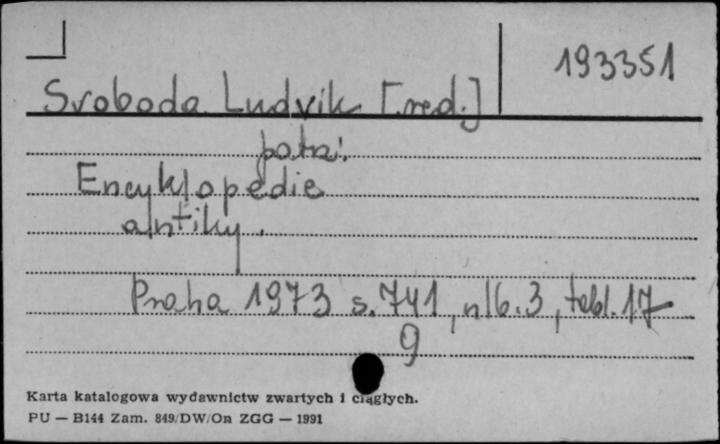 193351
Svoboda Ludvik [red.]
patrz:
Encyklopedie
antiky.
Praha 1973 s. 741, nlb. 3, tabl. 17
9
Karta katalogowa wydawnictw zwartych i ciągłych.
PU — B144 Zam. 849/DW/On ZGG — 1991